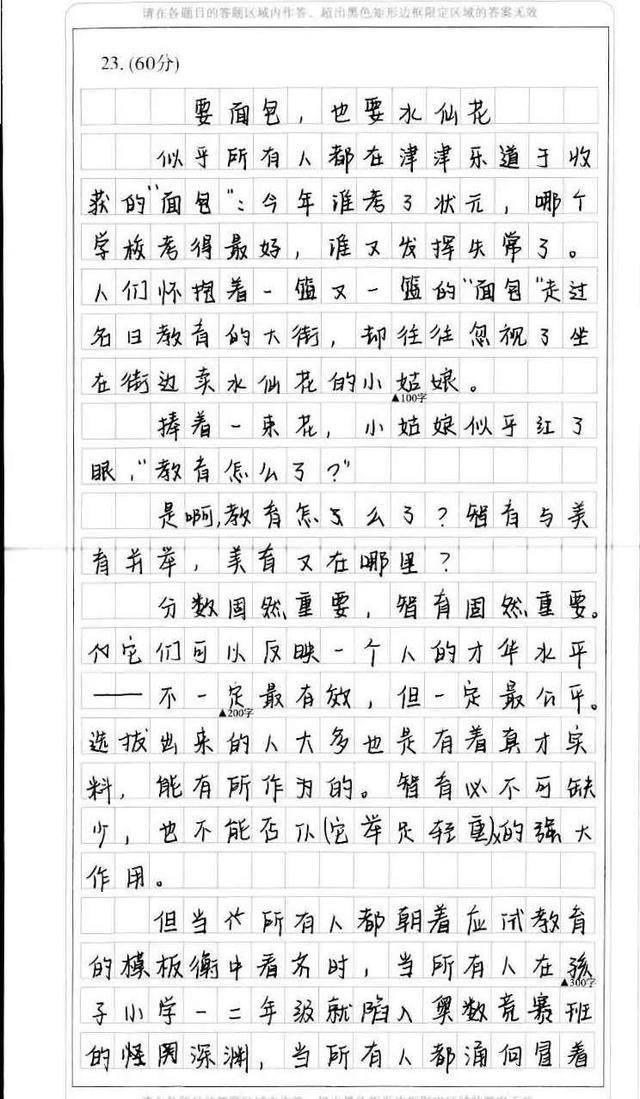 请在各题目的答题区域内作答，超出黑色矩形边框限定区域的答案无效
23.(60分)
要面包，也要水仙花
似乎所有人都在津津乐道于收
获的"面包"：今年谁考了状元，哪个
学校考得最好，谁又发挥失常了。
人们怀抱着一篮又一篮的"面包"走过
名曰教育的大街，却往往忽视了坐
在街边卖水仙花的小姑娘。
▲100字
捧着一束花，小姑娘似乎红了
眼，"教育怎么了？"
是啊,教育怎么了？智育与美
育并举，美育又在哪里？
分数固然重要，智育固然重要。
它们可以反映一个人的才华水平
——不一定最有效，但一定最公平。
▲200字
选拔出来的人大多也是有着真才实
料，能有所作为的。智育必不可缺
少，也不能否认(它举足轻重)的强大
作用。
但当代所有人都朝着应试教育
的模板衡中看齐时，当所有人在孩
▲300字
子小学一二年级就陷入奥数竞赛班
的怪圈深渊，当所有人都涌向冒着